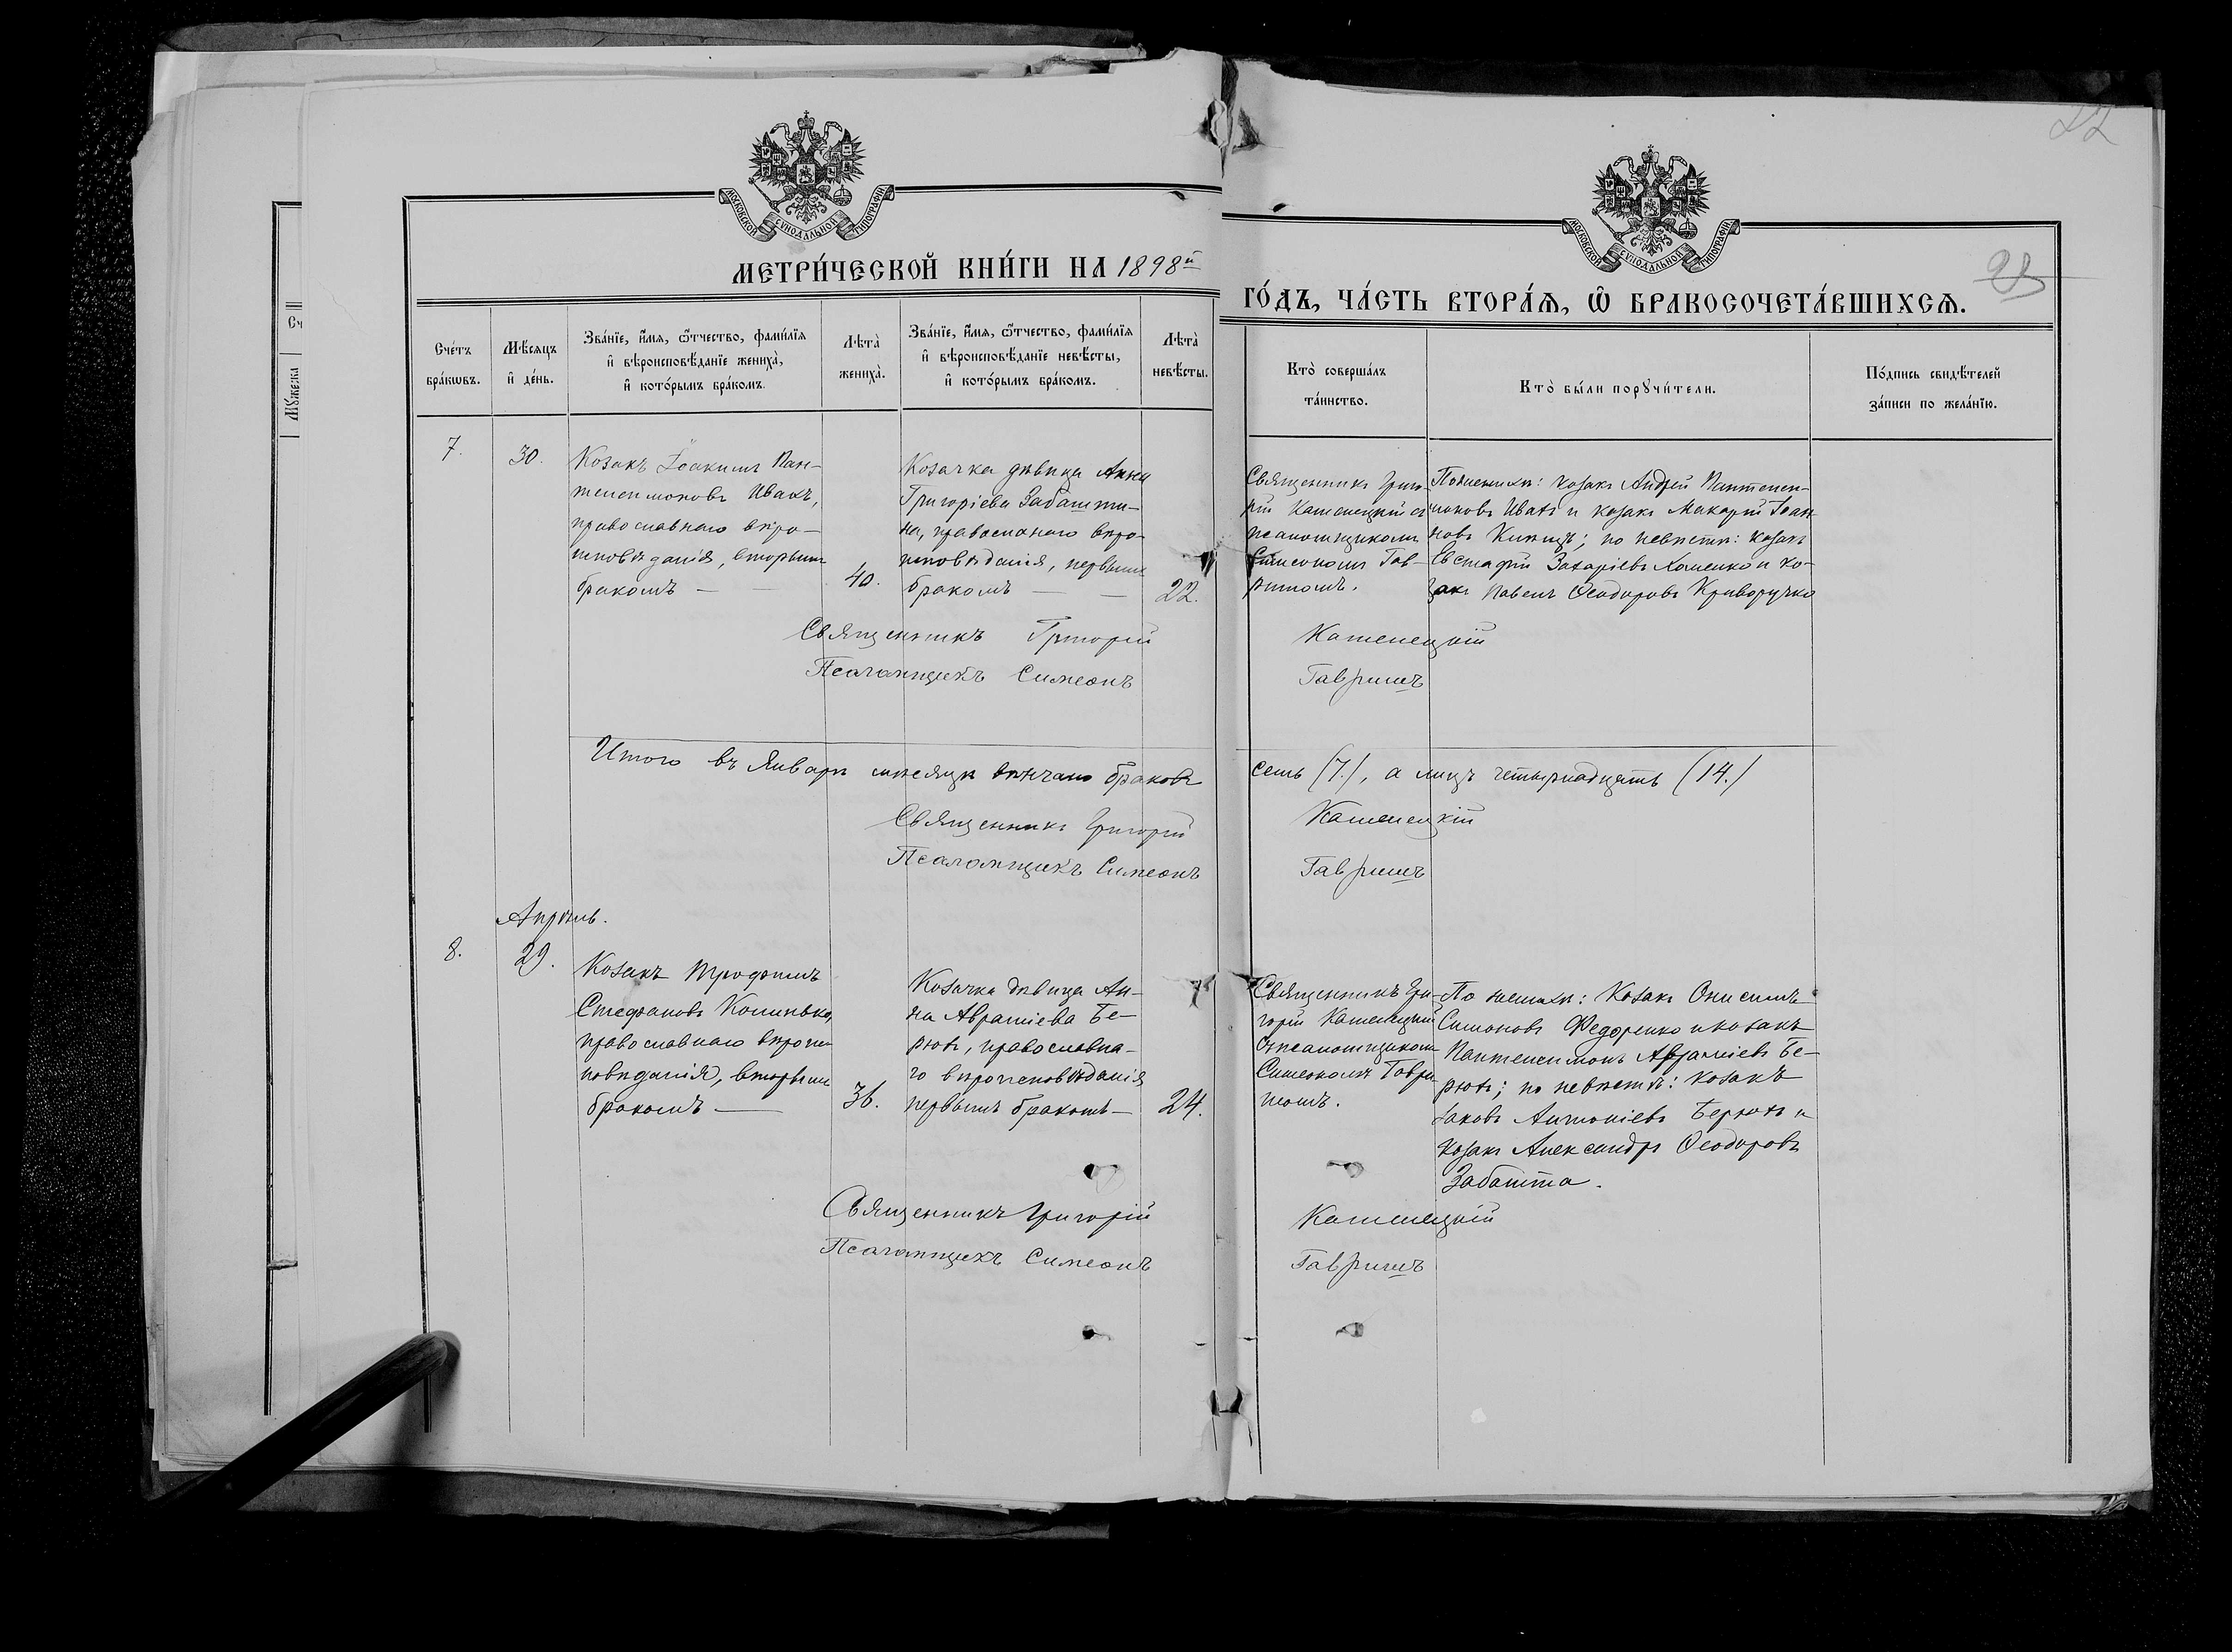 22
МОСКОВСКОЙ СУНОДАЛЬНОЙ ТИПОГРАФІИ
МОСКОВСКОЙ СУНОДАЛЬНОЙ ТИПОГРАФІИ
МЕТРИ́ЧЕСКОЙ КНИ́ГИ НА 1898й
ГО́ДЪ, ЧА́СТЬ ВТОРА́Я, Ѽ БРАКОСОЧЕТА́ВШИХСЯ.
Сче́тъ
бра́кѡвъ.
Мѣ́сяцъ
и҆ де́нь.
Зва́нїе, и҆́мя, ѻ҆́тчество, фами́лїя
и҆ вѣроисповѣ́данїе жениха̀,
и҆ кото́рымъ бра́комъ.
Лѣта̀
жениха̀.
Зва́нїе, и҆́мя, ѻ҆́тчество, фами́лїя
и҆ вѣроисповѣ́данїе невѣ́сты,
и҆ кото́рымъ бра́комъ.
Лѣта̀
невѣ́сты.
Кто̀ соверша́лъ
та́инство.
Кто̀ бы́ли порꙋчи́тели.
По́дпись свидѣ́телей
за́писи по жела́нїю.
Сч
Мꙋжска
7.
30.
Козакъ Іоакимъ Пан-
телеимоновъ Ивахъ,
православнаго вѣро-
исповѣданія, вторымъ
бракомъ —
40.
Козачка дѣвица Анна
Григоріева Забашти-
на, православнаго вѣро-
исповѣданія, первымъ
бракомъ — —
22.
Священникъ Григо-
рій Каменецкій съ
псаломщикомъ
Симеономъ Гав-
ришомъ.
По женихѣ: козакъ Андрей Пантелеи-
моновъ Ивахъ и козакъ Макарій Іоан-
новъ ; по невѣстѣ: козакъ
Евстафій Захаріевъ Хоменко и ко-
закъ Павелъ Ѳеодоровъ Криворучко
Священникъ Григорій Каменецкій
Псаломщикъ Симеонъ Гавришъ
Итого въ Январѣ мѣсяцѣ вѣнчано браковъ семь (7.), а лицъ четырнадцать (14.)
Священникъ Григорій Каменецкій
Псаломщикъ Симеонъ Гавришъ
Апрѣль.
8.
29.
Козакъ Трофимъ
Стефановъ
православнаго вѣроис-
повѣданія, вторымъ
бракомъ —
36.
Козачка дѣвица Ан-
на Авраміева Бе-
рютъ, православна-
го вѣроисповѣданія
первымъ бракомъ —
24.
Священникъ Гри-
горій Каменецкій
съ псаломщикомъ
Симеономъ Гаври-
шомъ.
По женихѣ: Козакъ Онисимъ
Симоновъ Федоренко и козакъ
Пантелеимонъ Авраміевъ Бе-
рютъ; по невѣстѣ: козакъ
Іаковъ Антоніевъ Берютъ и
козакъ Александръ Ѳеодоровъ
Забашта.
Священникъ Григорій Каменецкій
Псаломщикъ Симеонъ Гавришъ